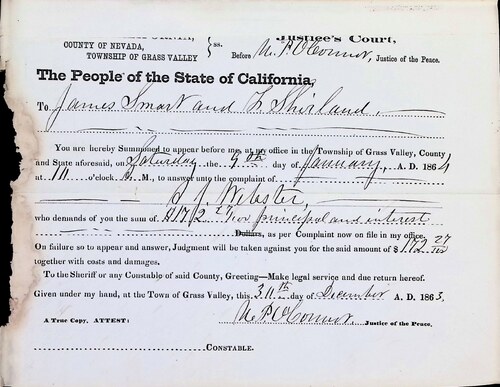 Justice's Court,
COUNTY OF NEVADA, } ss.
TOWNSHIP OF GRASS VALLEY Before M. P. O'Connor, Justice of the Peace.
The People of the State of California,
To James Smart and Shirland,
You are hereby Summoned to appear before me, at my office in the Township of Grass Valley, County
and State aforesaid, on Saturday the 9 day of January, A. D. 1864
at o'clock M., to answer unto the complaint of
J. Webster,
who demands of you the sum of $172 27/100 principal and interest
Dollars, as per Complaint now on file in my office.
On failure so to appear and answer, Judgment will be taken against you for the said amount of $172 27/100
together with costs and damages.
To the Sheriff or any Constable of said County, Greeting—Make legal service and due return hereof.
Given under my hand, at the Town of Grass Valley, this day of December A. D. 1863.
A True Copy, ATTEST: M. P. O'Connor, Justice of the Peace,
CONSTABLE.